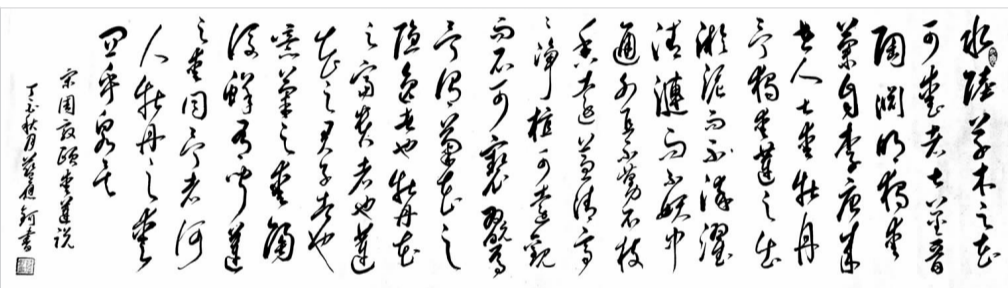 水陸草木之花
可愛者甚蕃晉
陶淵明獨愛
菊自李唐來
世人甚愛牡丹
予獨愛蓮之出
淤泥而不染濯
清漣而不妖中
通外直不蔓不枝
香遠益清亭
亭淨植可遠觀
而不可褻玩焉
予謂菊花之
隱逸者也牡丹花
之富貴者也蓮
花之君子者也
噫菊之愛陶
後鮮有聞蓮
之愛同予者何
人牡丹之愛
宜乎衆矣
宋周敦頤愛蓮說
丁亥秋月書